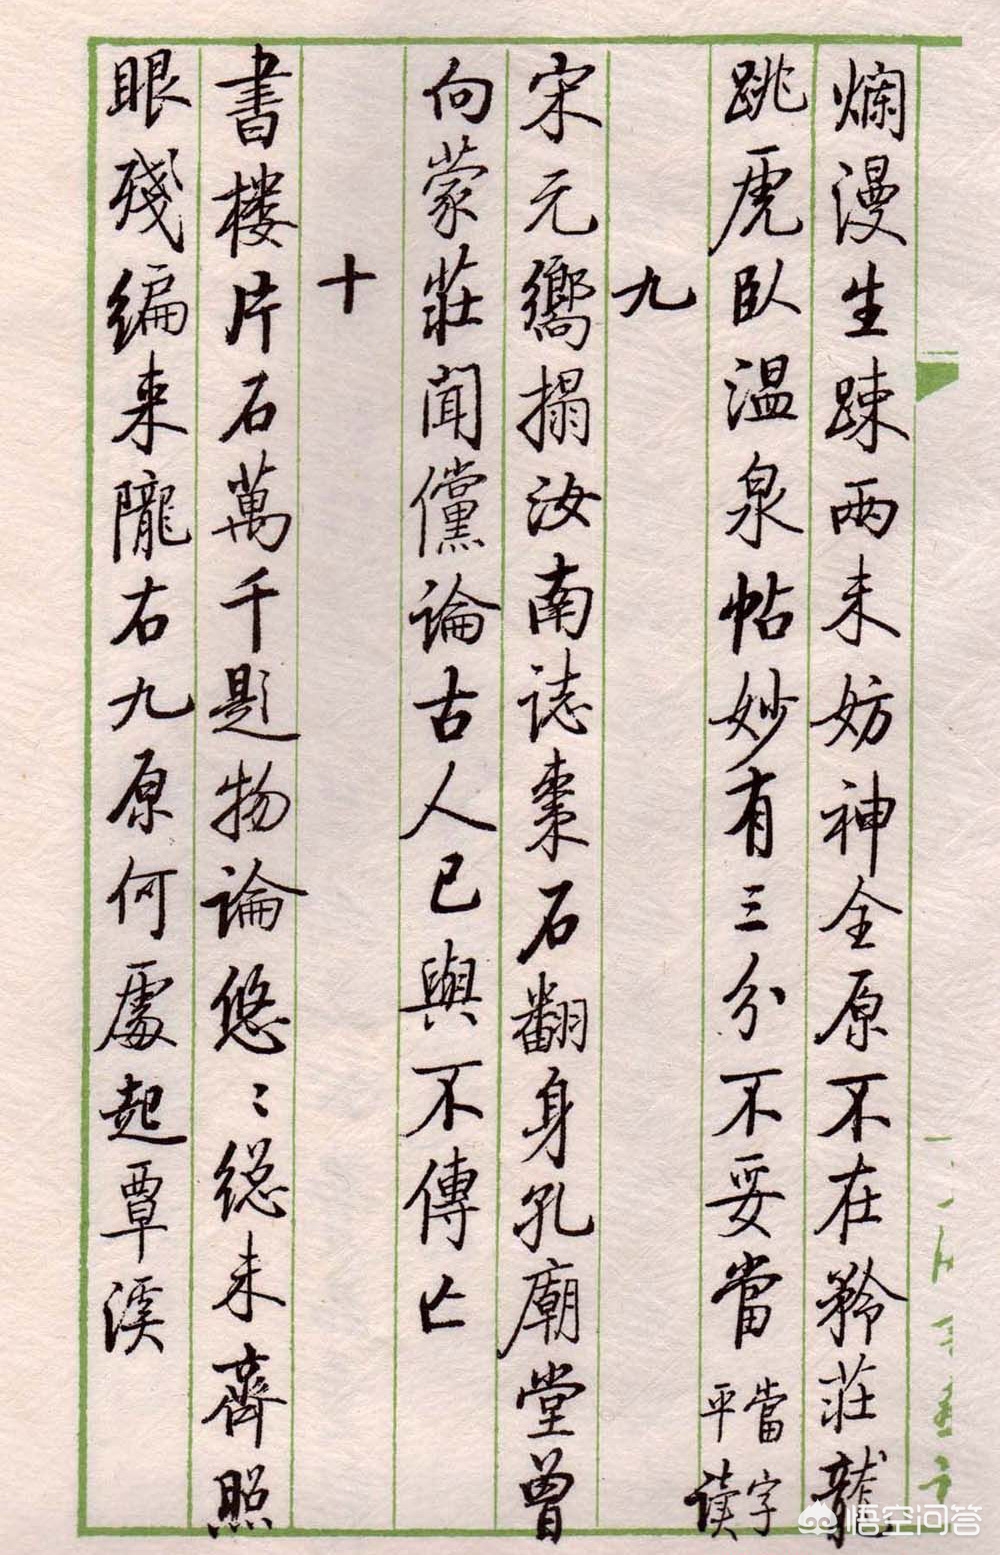 爛漫生踈兩未妨神全原不在矜莊龍
跳虎臥温泉帖妙有三分不妥當 當字平读
九
宋元嚮搨汝南誌棗石翻身孔廟堂曾
向蒙莊聞儻論古人已與不傳亡
十
書楼片石萬千題物論悠〻緫未齊照
眼殘编来隴右九原何處起覃溪
悟空问答